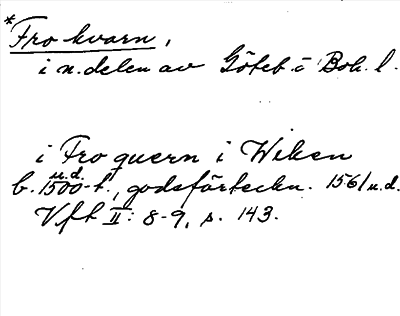 *Fro kvarn,
i n. delen av Göteb. o Boh. l.
i Fro quern i Wiken
u.d.
b. 1500-t., godsförteckn. 1561 u.d.
Vft II: 8-9, s. 143.